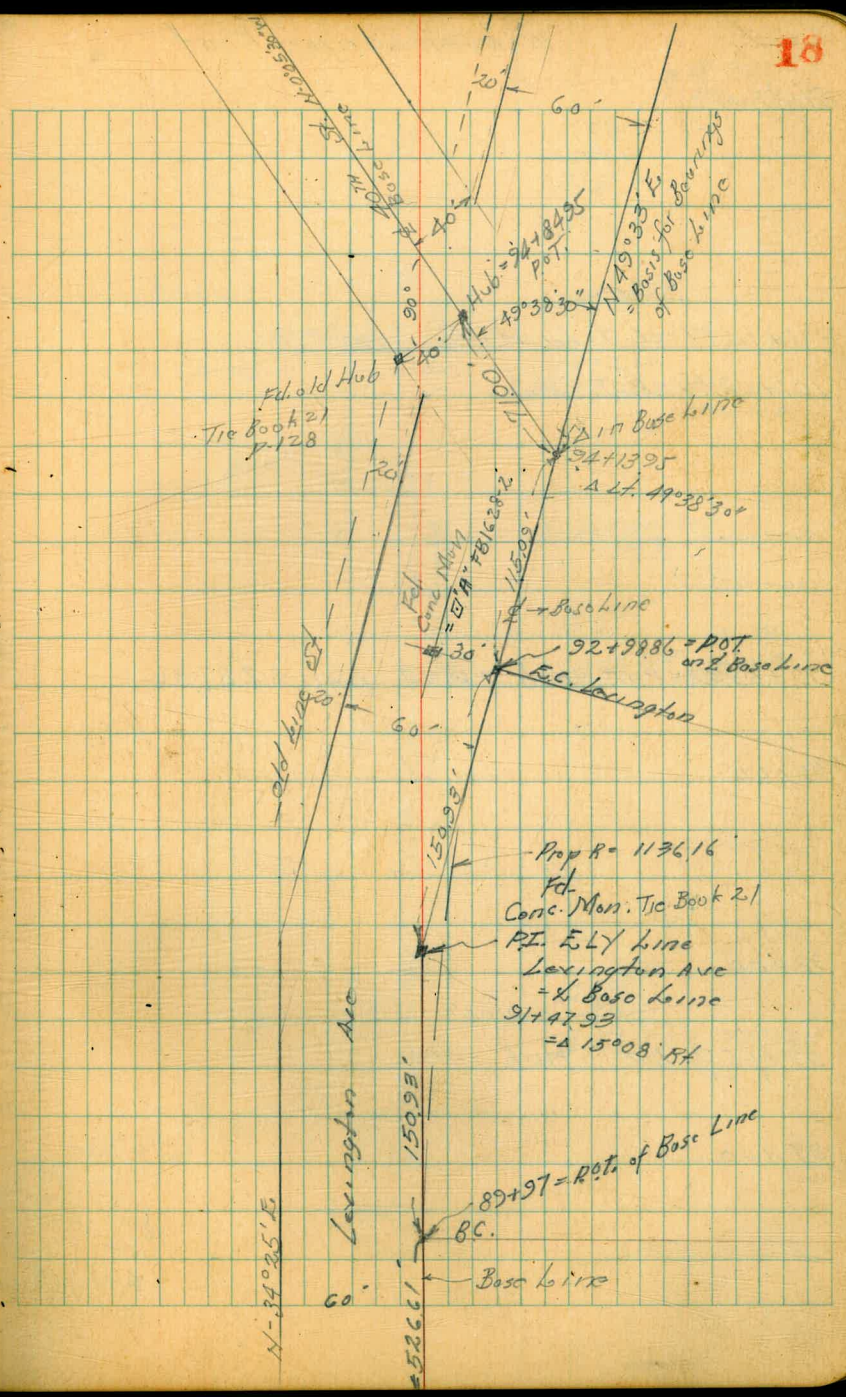 18
20'
60'
40TH St. N-0°05'30"W
Base Line
40'
90°
Hub = 94+84.95
P.O.T.
49°38'30"
N 49°33' E
= Basis for Bearings
of Base Line
40'
Fd. old Hub
Tie Book 21
P-128
71.00
Δ in Base Line
94+13.95
Δ Lt. 49°38'30"
20'
Fd.
Conc Mon
= "A" FB1628-2
115.09'
Base Line
30'
92+98.86 = P.O.T.
on Base Line
E.C. Lexington
Old Line St
20'
60'
150.93'
Prop R = 1136.16
Fd.
Conc. Mon. Tie Book 21
P.I. ELY Line
Lexington Ave
= Base Line
91+47.93
= Δ 15°08' Rt
Lexington Ave
150.93'
89+97 = P.O.T. of Base Line
B.C.
Base Line
N-34°25' E
60'
=526.61'